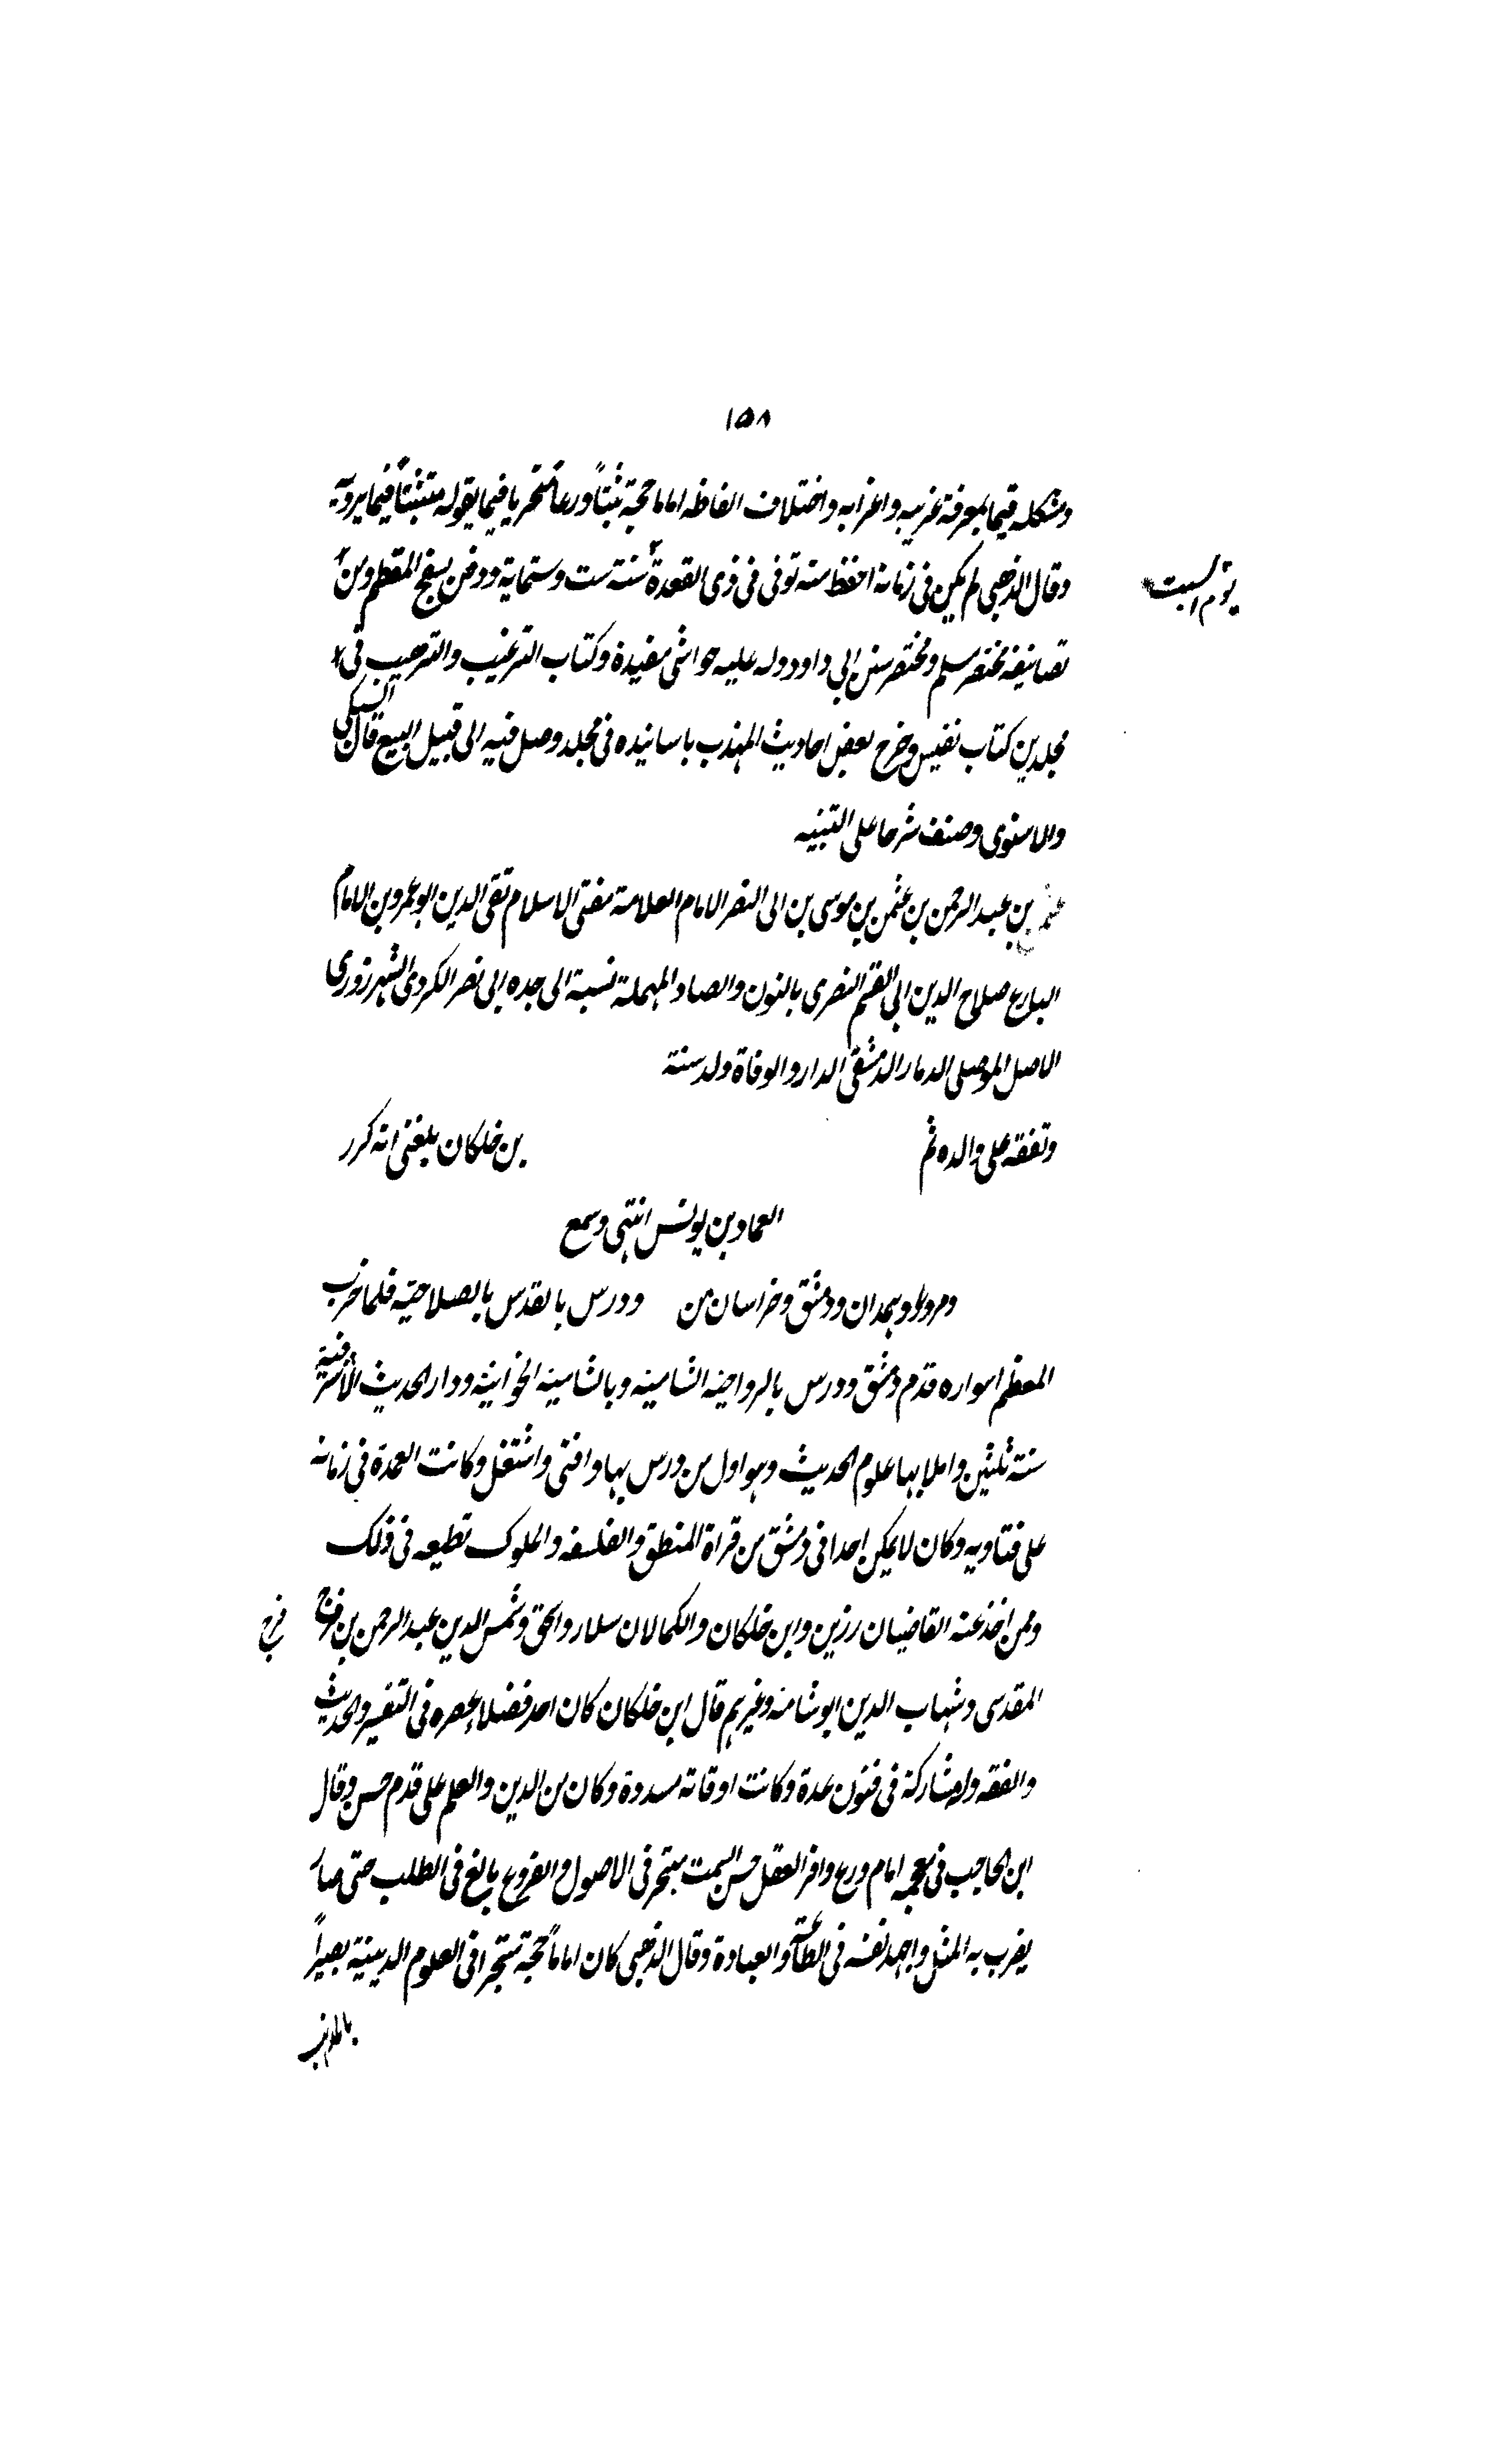 ١٥٨
ومشكله قيما بمعرفة غريبه واعرابه واختلاف الفاظه اماما حجة ثبتاً ورعاً متحريا فيما يقوله متثبتاً فيما يرويه
وقال الذهبي لم يكن فى زمانه احفظ منه توفى فى ذى القعدة سنة ست وستماية ودفن بسفح المقطم ومن
يوم السبت
تصانيفه مختصر مسلم ومختصر سنن ابي داود وله عليه حواشى مفيدة وكتاب الترغيب والترهيب فى
مجلدين كتاب نفيس وخرج بعض احاديث المهذب باسانيده فى مجلد وصل فيه الى قبيل البيع قال السبكى
والاسنوى وصنف شرحا على التنبيه
عثمن بن عبد الرحمن بن عثمن بن موسى بن ابى النصر الامام العلامة مفتى الاسلام تقى الدين ابو عمرو بن الامام
البارع صلاح الدين ابى القسم النصرى بالنون والصاد المهملة نسبة الى جده ابى نصر الكردى الشهرزورى
الاصل الموصلى الدمار الدمشقى الدار والوفاة ولد سنة
وتفقه على والده ثم بن خلكان بلغنى انه كرر
العماد بن يونس انتهى وسمع
ومرو وهمدان ودمشق وخراسان من ودرس بالقدس بالصلاحية فلما خرب
المعظم اسواره قدم دمشق ودرس بالرواحية الشامية وبالشامية الجوانية ودار الحديث الأشرفية
سنة ثلثين واملا بها علوم الحديث وهو اول من درس بها وافتى واشتغل وكانت العمدة فى زمانه
على فتاويه وكان لا يمكن احدا فى دمشق من قراة المنطق والفلسفه والملوك تطيعه فى ذلك
وممن اخذ عنه القاضيان رزين وابن خلكان والكمالان سلار واسحق وشمس الدين عبد الرحمن بن فرح
فرح
المقدسى وشهاب الدين ابو شامة وغيرهم قال ابن خلكان كان احد فضلاء عصره فى التفسير والحديث
والفقه وله مشاركة فى فنون عدة وكانت اوقاته مسددة وكان من الدين والعلم على قدم حسن وقال
ابن الحاجب فى معجمه امام ورع وافر العقل حسن السمت متبحر فى الاصول والفروع بالغ فى الطلب حتى صار
يضرب به المثل واجهد نفسه فى الطاعة والعبادة وقال الذهبى كان اماماً حجة متبحرا فى العلوم الدينية بصيراً
بالمذهب